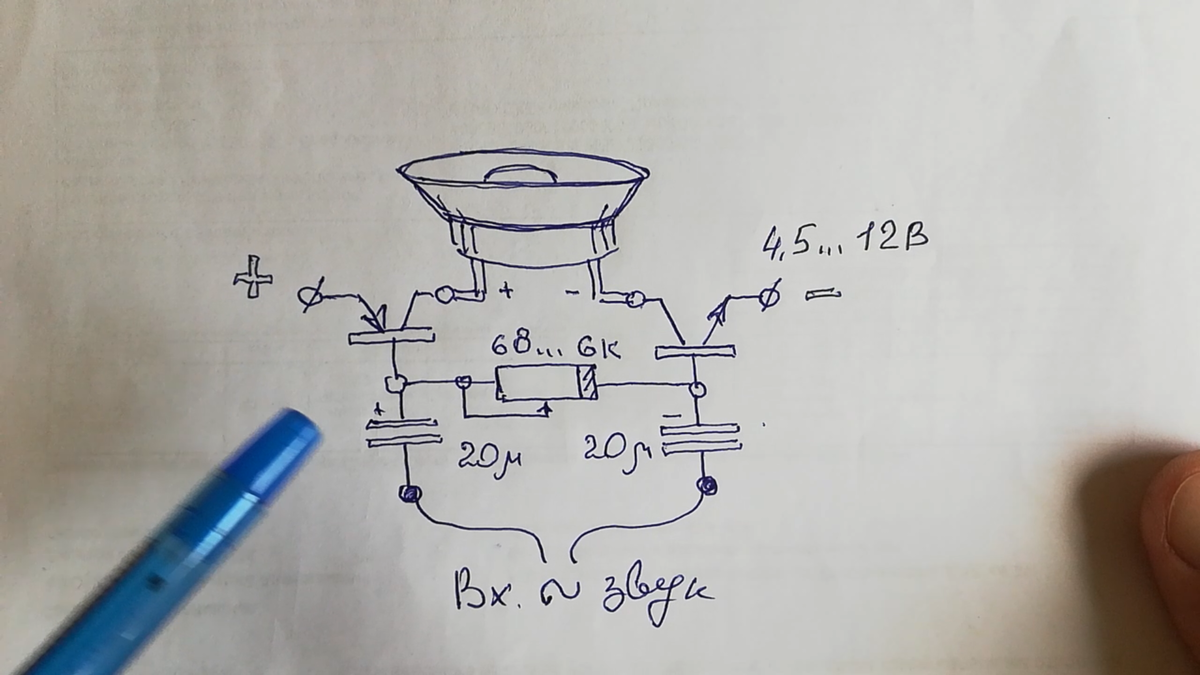 4,5... 12В
+ + - -
68... 6К
+ -
20μ 20μ
Вх. ~ звук